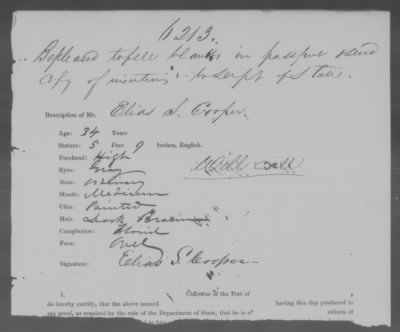 6213.
Be pleased to fill blanks in passport & send
copy of
Description of Mr. Elias S. Cooper.
Age: 34 Years
Stature: 5 Feet 9 Inches, English.
Forehead: High
Eyes: Grey
Will call
Nose: Ordinary
Mouth: Medium
Chin: Pointed
Hair: Dark Brown
Complexion: Florid
Face: Oval
Signature: Elias S. Cooper
I, Collector of the Port of
do hereby certify, that the above named having this day produced to
me proof, as required by the rule of the Department of State, that he is a citizen of